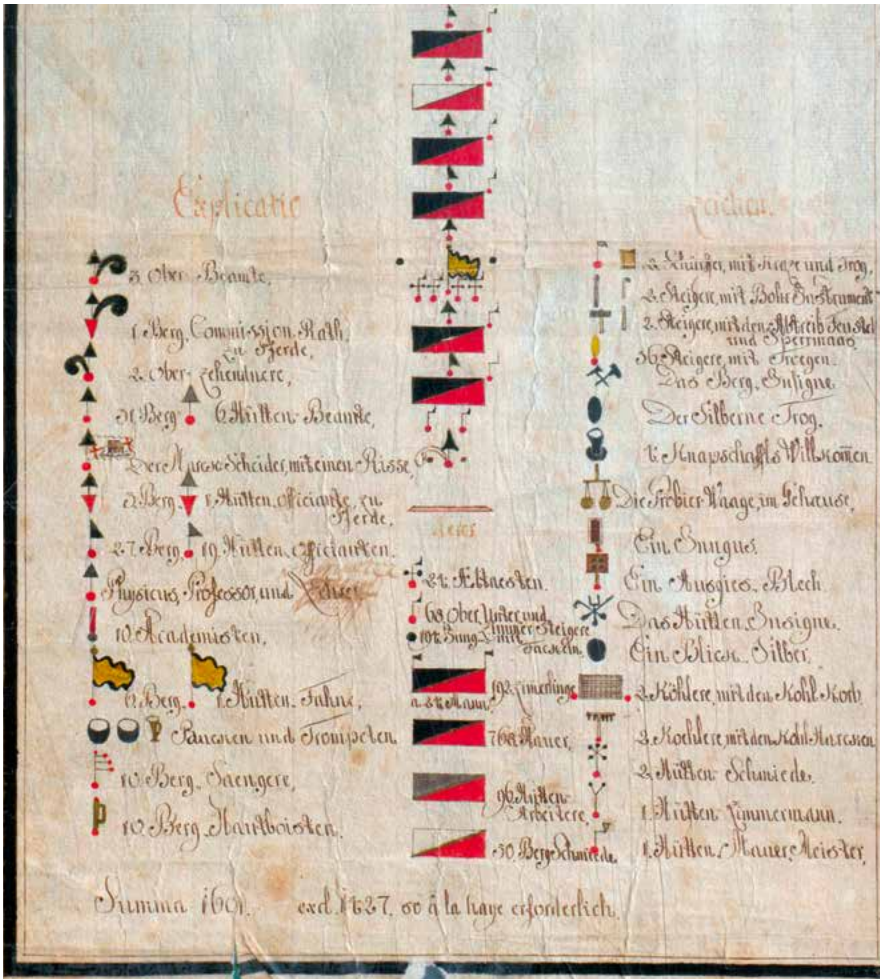 Explicatio
3. Ober-Beamte,
1. Berg-Commission-Rath,
zu Pferde,
2. Ober-Zehendnere,
Berg- 6 Hütten-Beamte,
Der Marck-Scheider, mit einen Risse,
Berg- 1. Hütten-officiante, zu
Pferde,
27. Berg- 19. Hütten-officianten.
Physicus, Professor, und
10. Academisten,
Berg- 1. Hütten-Fahne,
Paucken und Trompeten
10. Berg-Saengere,
10. Berg-Hautboisten.
Aeltesten.
68. Ober, Unter und
Zimmer Steigere
mit
Fackeln.
192. Zimerlinge
Mann,
768. Hauer,
96. Hütten-
Arbeitere,
50. Berg Schmiede
Zeichen.
mit Kraze und Trog,
2. Steigere, mit Bohr Instrument
2. Steigere, mit den Abtreib Feustel
und Sperrmaas
36. Steigere, mit Troegen.
Das Berg-Insigne
Der Silberne Trog.
1. Knapschaffts Willkomen
Die Probier-Waage, im Gehause,
Ein Einguss
Ein Ausgies-Blech
Das Hütten-Insigne.
Ein Blick-Silber.
2. Köhlere, mit den Kohl Korb
2. Koehlere, mit den Kohl Harcken
2. Hütten-Schmiede.
1. Hütten-Zimmermann.
1. Hütten-Mauer-Meister,
Summa excl. so à la haye erforderlich.